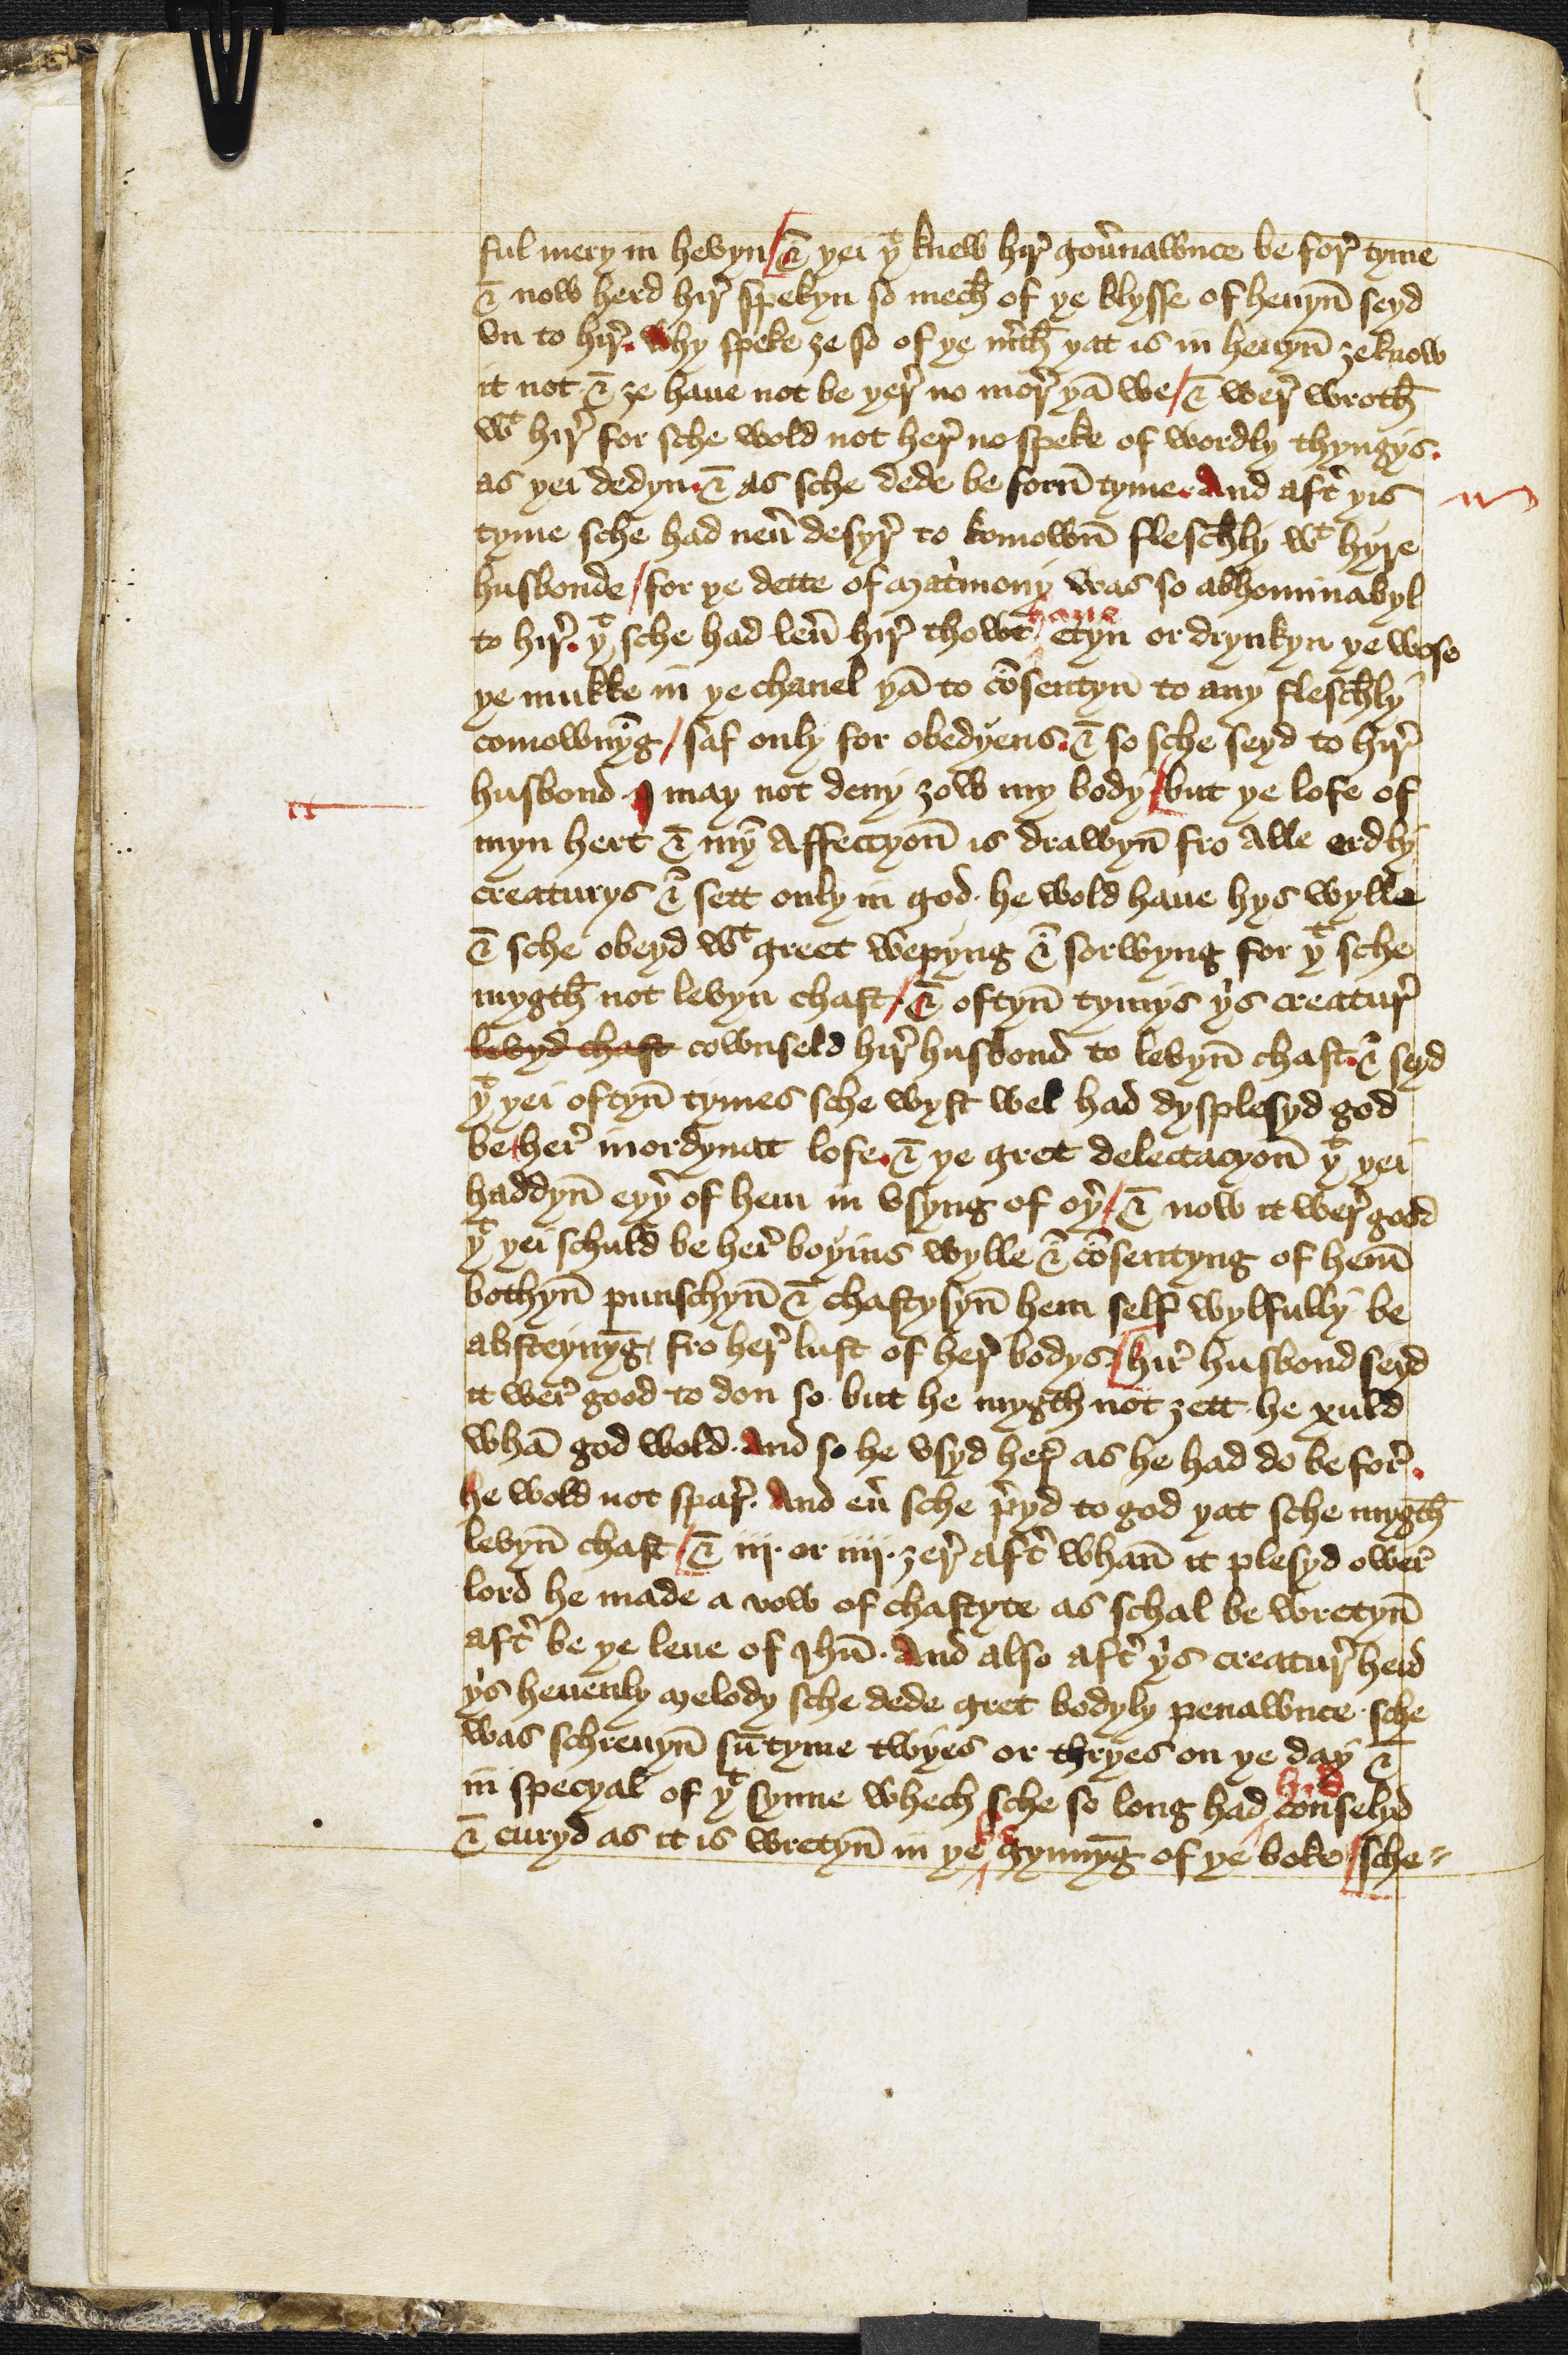 ful mery in hevyn / & yei yt knew hir gou̾nawnce be for tyme
& now herd hir spekyn so mech of ye blysse of heuyn̄ seyd
vn to hir. Why speke ȝe so of ye mrth yat is in heuyn̄ ȝe know
it not & ȝe haue not be yer no mor yā we / & wer wroth
wt hir for sche wold not her no speke of wordly thyngys.
as yei dedyn. & as sche dede be forn̄ tyme. And aft̾ yis
tyme sche had neu̾ desyr to komown̄ fleschly wt hyre
husbonde / for ye dette of mat̾mony was so abhominabyl
to hir. yt sche had leu̾ hir thowt haue etyn or drynkyn ye wose
ye mukke in ye chanel yā to cōsentyn to any fleschly
comownyg̅ / saf only for obedyens. & so sche seyd to hir
husbond. I may not deny ȝow my body / but ye lofe of
myn hert & my̅ affeccyon̄ is drawyn̄ fro alle erdly
creaturys & sett only in god. he wold haue hys wylle
& sche obeyd wt greet wepyng & sorwyng for yt sche
mygth not levyn chast / & oftyn̄ tymys ys creatur
levyd chast cownseld hir husbond to levyn̄ chast. & seyd
yt yei oftyn̄ tymes sche wyst wel had dysplesyd god
be her inordynat lofe. & ye gret delectacyon̄ yt yei
haddyn̄ eyy̾ of hem in vsyng of oy̾ / & now it wer good
yt yei schuld be her boyins wylle & cōsentyng of hem̄
bothyn̄ punschyn̄ & chastysyn̄ hem self wylfully be
absteynyg̅ fro her lust of her bodys / hir husbond seyd
it wer good to don so. but he mygth not ȝett. he xuld
whā god wold. And so he vsyd her as he had do be for.
he wold not spar. And eu̾ sche p̾yd to god yat sche mygth
levyn̄ chast / & iij. or iiij. ȝer aft̾ whan̄ it plesyd ower
lord he made a vow of chastyte as schal be wretyn̄
aft̾ be ye leue of Ihū. And also aft̾ ys creatur herd
ys heuenly melody sche dede gret bodyly penawnce. sche
was schreuyn̄ sū tyme twyes or thryes on ye day &
in specyal of yt synne whech sche so long had hyd conselyd
& curyd as it is wretyn̄ in ye be gynnyg̅ of ye boke / sche